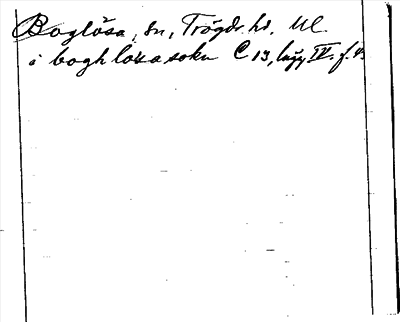 Boglösa, sn, Trögds hd. Ul.
i boghlosa sokn C 13, lägg IV. f. 4